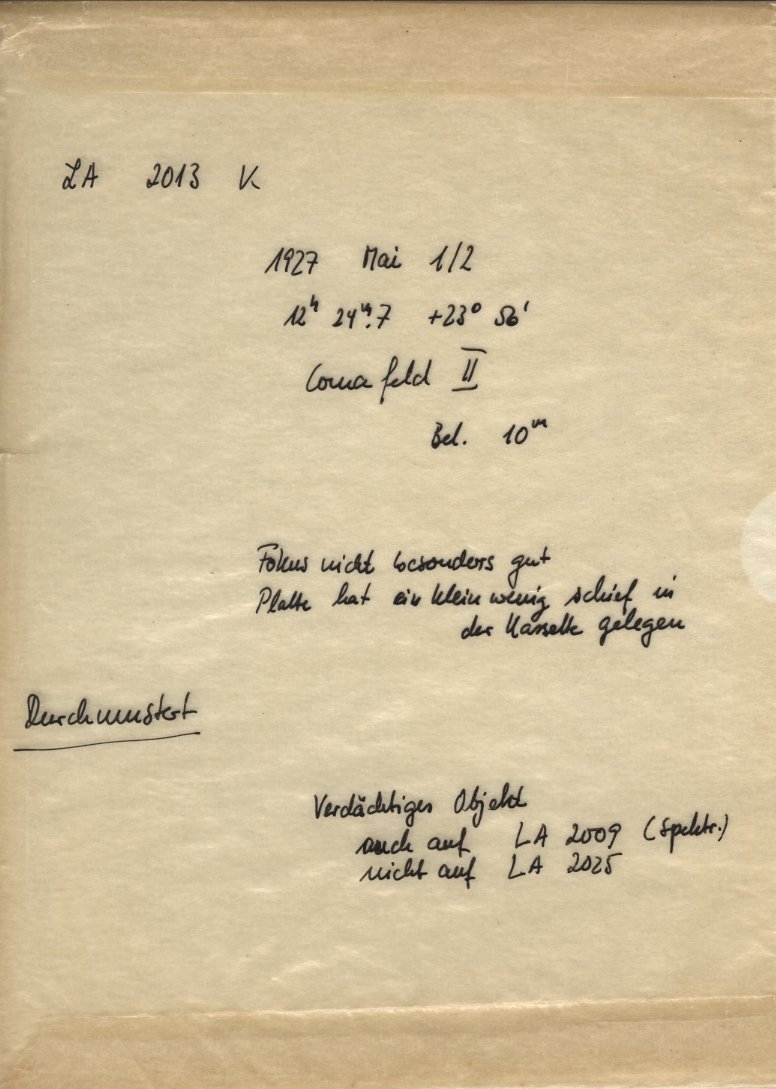 LA 2013 K
1927 Mai 1/2
12ʰ 24ᵐ.7 +23° 56'
Coma feld II
Bel. 10ᵐ
Fokus nicht besonders gut
Platte hat ein klein wenig schief in
der Kassette gelegen
Durchmustert
Verdächtiges Objekt
auch auf LA 2009 (Spektr.)
nicht auf LA 2025